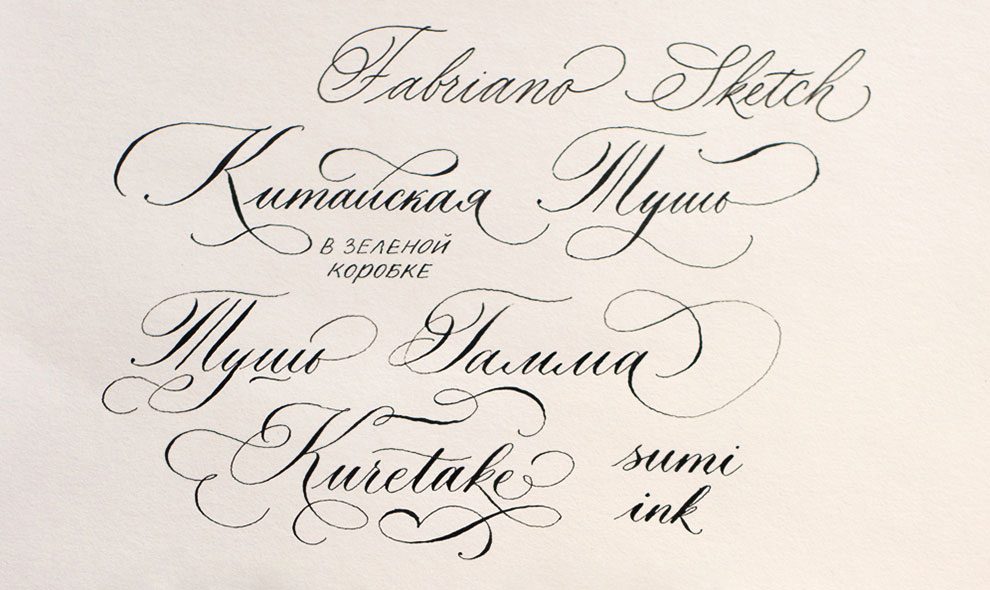 Fabriano Sketch
Китайская Тушь
В ЗЕЛЕНОЙ
КОРОБКЕ
Тушь Гамма
Kuretake sumi
ink